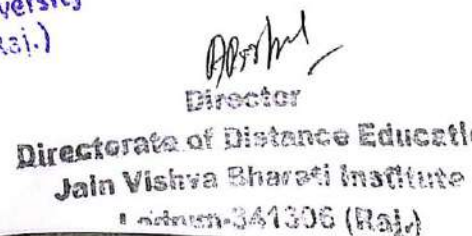 versity
Raj.)
Director
Directorate of Distance Educati
Jain Vishva Bharati Institute
Ladnun-341306 (Raj.)